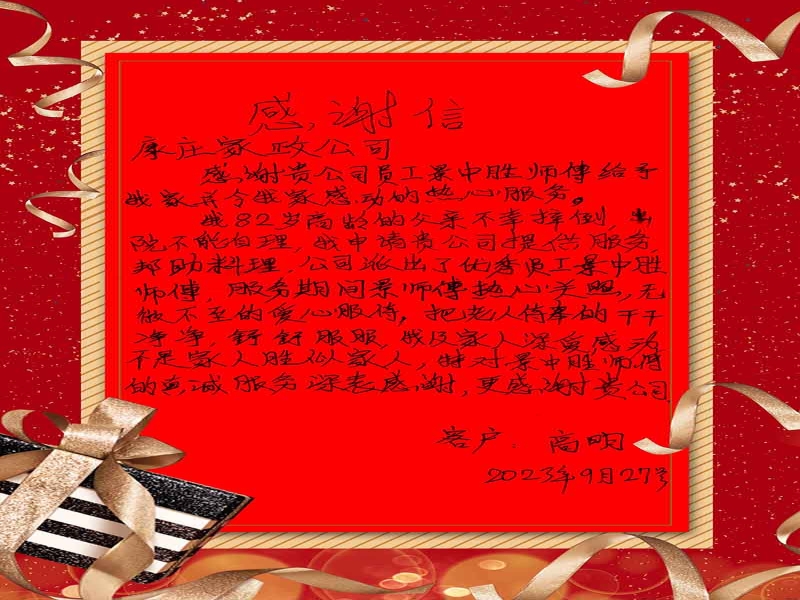 感谢信
康庄家政公司
感谢贵公司员工景中胜师傅给予
我家式令我家感动的热心服务。
我82岁高龄的父亲不幸摔倒,出
院不能自理,我申请贵公司提供服务
帮助料理,公司派出了优秀员工景中胜
师傅,服务期间景师傅热心关照,无
微不至的爱心服侍,把老人侍奉的干干
净净,舒舒服服,我及家人深受感动
不是家人胜似家人,特对景中胜师傅
的真诚服务深表感谢,更感谢贵公司
客户:高明
2023年9月27号